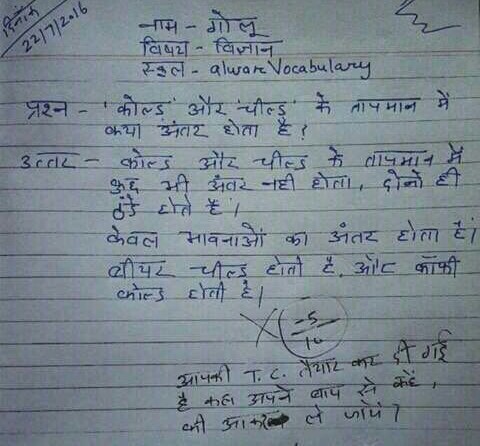 दिनांक
22/7/2016
नाम - गोलू
विषय - विज्ञान
स्कूल - alware Vocabulary
प्रश्न - 'कोल्ड' और 'चील्ड' के तापमान में
क्या अंतर होता है?
उत्तर - कोल्ड और चील्ड के तापमान में
कुछ भी अंतर नही होता, दोनो ही
ठंडे होते है।
केवल भावनाओं का अंतर होता है।
बीयर चील्ड होती है, और कॉफी
कोल्ड होती है।
-5
10
आपकी T.C. तैयार कर दी गई
है कल अपने बाप से कहें,
की आकर ले जाये?